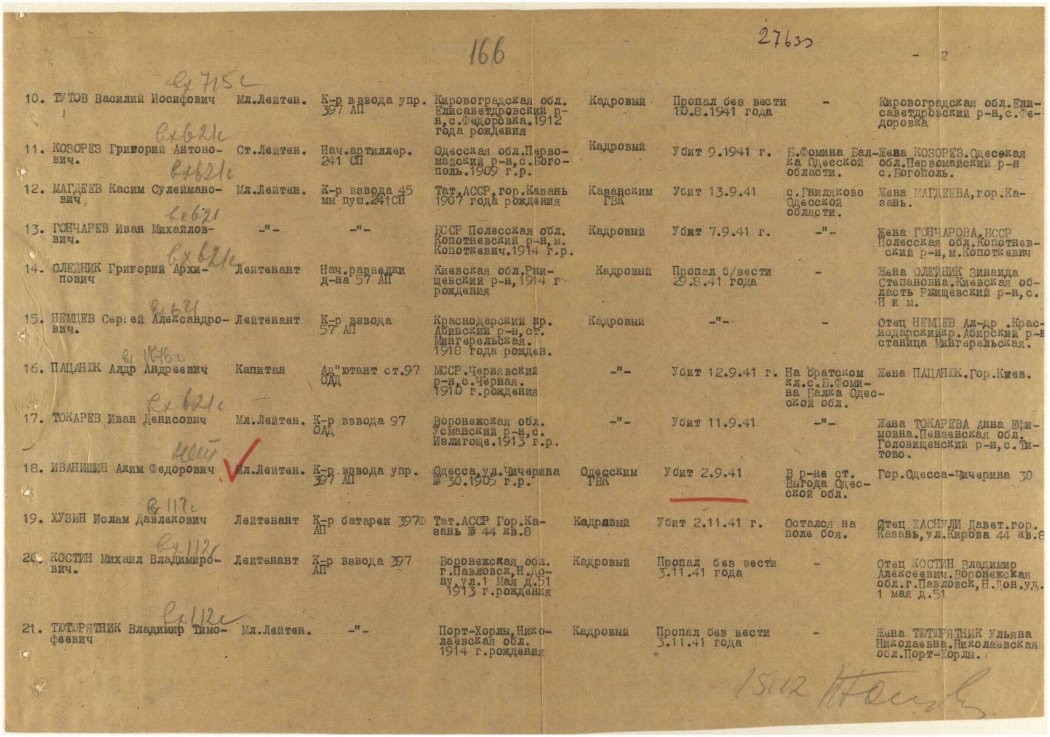 27630
166
- 2
вх 715с
10. ТУТОВ Василий Иосифович Мл.Лейтен. К-р взвода упр. 397 АП Кировоградская обл. Елисаветдровский р-н,с.Федоровка.1912 года рождения Кадровый Пропал без вести 10.8.1941 года - Кировоградская обл.Елисаветдровский р-н,с.Федоровка
вх621с
11. КОЗОРЕЗ Григорий Антонович. Ст.Лейтен. Нач.артиллер. 241 СП Одесская обл.Первомайский р-н,с.Богополь.1909 г.р. Кадровый Убит 9.1941 г. Б.Фомина Балка Одесской области. Жена КОЗОРЕЗ.Одесская обл.Первомайский р-н с.Богополь.
вх621с
12. МАГДЕЕВ Касим Сулейманович Мл.Лейтен. К-р взвода 45 мм пуш.241СП Тат.АССР,гор.Казань 1907 года рождения Казанским ГВК Убит 13.9.41 с.Гниляково Одесской области. Жена МАГДЕЕВА,гор.Казань.
вх621
13. ГОНЧАРЕВ Иван Михайлович. -"- -"- БССР Полесская обл. Копотневский р-н,м. Копоткевич.1914 г.р. Кадровый Убит 7.9.41 г. -"- Жена ГОНЧАРОВА,БССР Полесская обл.Копотневский р-н,м.Копоткевич
вх621с
14. ОЛЕЙНИК Григорий Архипович Лейтенант Нач.разведки д-на 57 АП Киевская обл.Ржищевский р-н,1914 г рождения Кадровый Пропал б/вести 29.8.41 года - Жена ОЛЕЙНИК Зинаида Степановна.Киевская область Ржищевский р-н,с. Н и м .
15. НЕМЦЕВ Сергей Александрович. Лейтенант К-р взвода 57 АП Краснодарский кр. Абинский р-н,ст. Мингерельская. 1918 года рожден. Кадровый -"- - Отец НЕМЦЕВ Ал-др .Краснодарскийкр.Абирский р-н станица Мингерельская.
16. ПАЦАНЮК Алдр Андреевич Капитан Ад"ютант ст.97 ОАД МССР.Чернявский р-н,с.Черная. 1910 г.рождения -"- Убит 12.9.41 г. На братском кл.с.Б.Фомина Балка Одесской обл. Жена ПАЦАНЮК.Гор.Киев.
вх621с
17. ТОКАРЕВ Иван Денисович Мл.Лейтен. К-р взвода 97 ОАД Воронежская обл. Усманский р-н,с. Излигоще.1913 г.р. -"- Убит 11.9.41 -"- Жена ТОКАРЕВА Анна Ефимовна.Пензенская обл. Головищенский р-н,с.Титово.
18. ИВАНИШИН Аким Федорович Мл.Лейтен. К-р взвода упр. 397 АП Одесса,ул.Чичерина № 30.1905 г.р. Одесским ГВК Убит 2.9.41 В р-не ст. Выгода Одесской обл. Гор.Одесса-Чичерина 30
вх117с
19. ХУЗИН Ислам Давлекович Лейтенант К-р батареи 397 АП Тат.АССР Гор.Казань № 44 кв.8 Кадровый Убит 2.11.41 г. Остался на поле боя. Отец ХАСНУЛИ Давет.гор. Казань,ул.Кирова 44 кв.8
вх112с
20. КОСТИН Михаил Владимирович. Лейтенант К-р взвода 397 АП Воронежская обл. г.Павловск,Н.Дону,ул.1 Мая д.51 1913 г.рождения Кадровый Пропал без вести 3.11.41 года - Отец КОСТИН Владимир Алексеевич.Воронежская обл.г.Павловск,Н.Дон.уд. 1 мая д.51
вх112с
21. ТЮТЮРЯТНИК Владимир Тимофеевич Мл.Лейтен. -"- Порт-Хорлы,Николаевская обл. 1914 г.рождения Кадровый Пропал без вести 3.11.41 года - Жена ТЮТЮРЯТНИК Ульяна Николаевна.Николаевская обл.Порт-Хорлы.